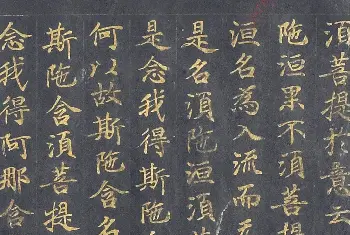 須菩提於意云
陁洹果不須菩提
洹名為入流而无
是名須陁洹須菩
是念我得斯陁
何以故斯陁含名
斯陁含須菩提
念我得阿那含